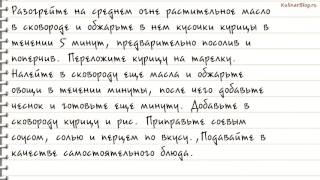 KulinarBlog.ru
Разогрейте на среднем огне растительное масло
в сковороде и обжарьте в нем кусочки курицы в
течении 5 минут, предварительно посолив и
поперчив. Переложите курицу на тарелку.
Налейте в сковороду еще масла и обжарьте
овощи в течении минуты, после чего добавьте
чеснок и готовьте еще минуту. Добавьте в
сковороду курицу и рис. Приправьте соевым
соусом, солью и перцем по вкусу.,Подавайте в
качестве самостоятельного блюда.